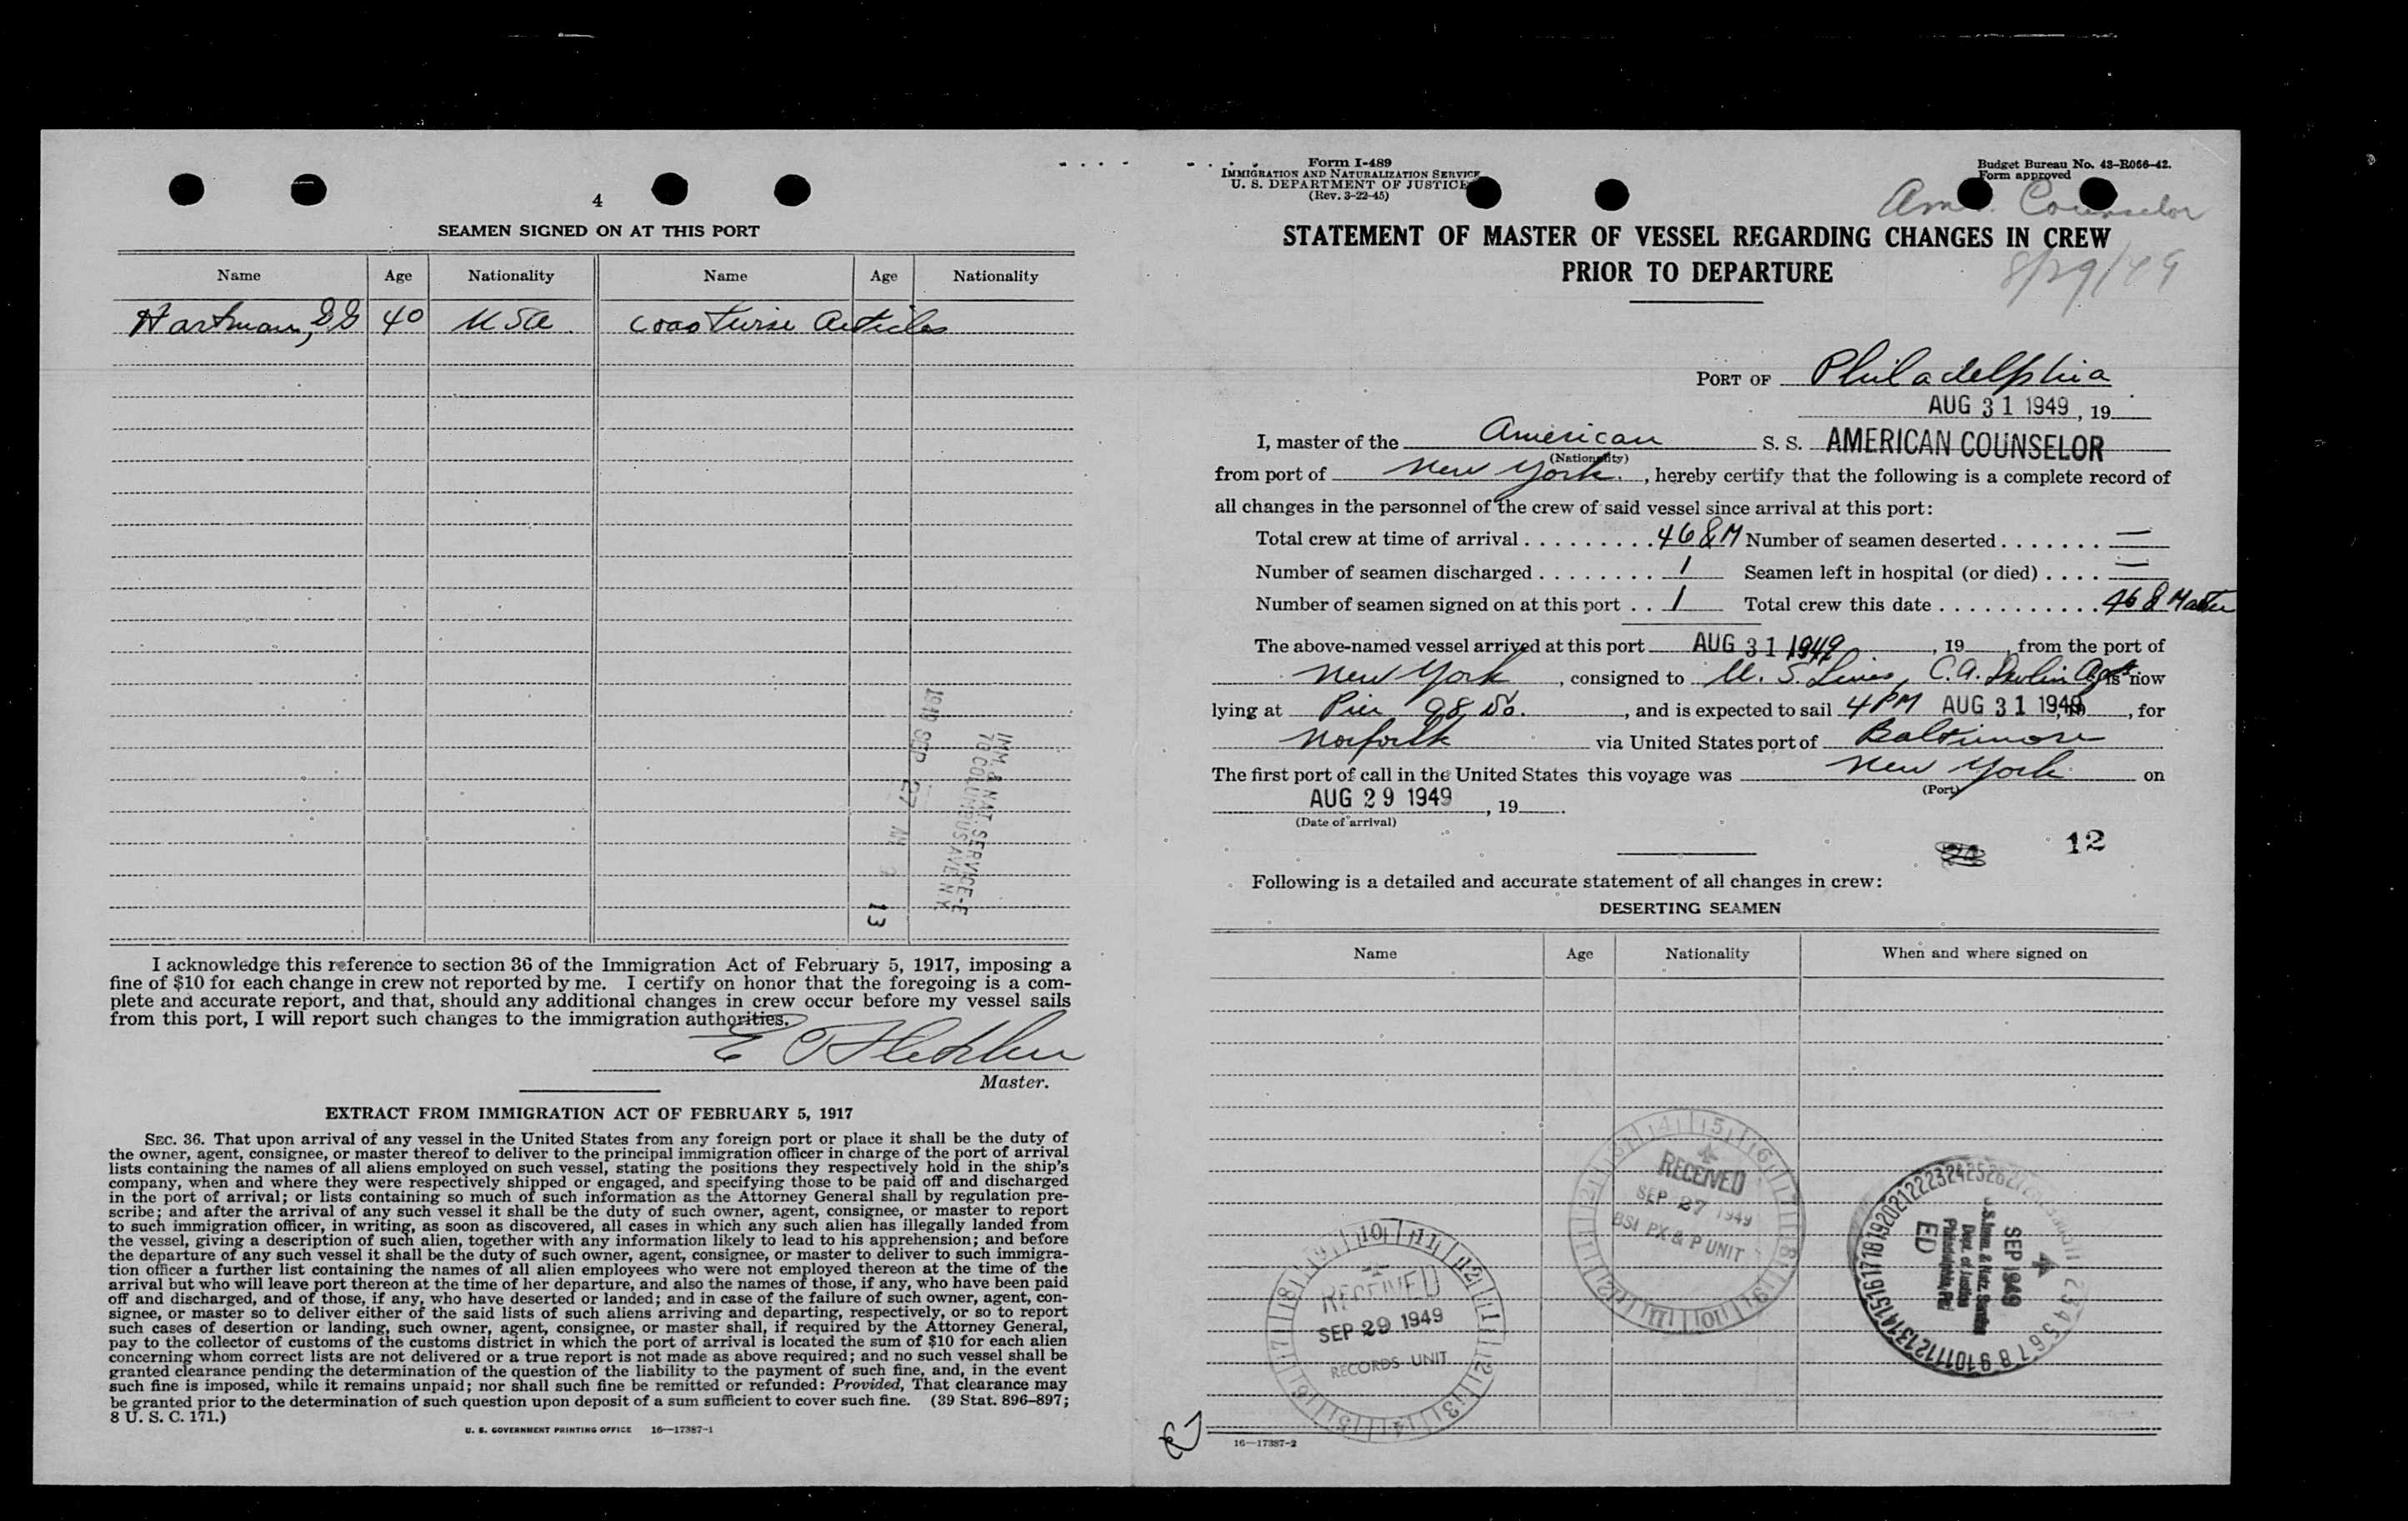 4
SEAMEN SIGNED ON AT THIS PORT
Name Age Nationality Name Age Nationality
Hartman, 40 USA Coastwise Articles
1949 SEP 27 AM 9 13
IMM. & NAT. SERVICE-E
70 COLUMBUS AVE N.Y.
I acknowledge this reference to section 36 of the Immigration Act of February 5, 1917, imposing a
fine of $10 for each change in crew not reported by me. I certify on honor that the foregoing is a com-
plete and accurate report, and that, should any additional changes in crew occur before my vessel sails
from this port, I will report such changes to the immigration authorities.
Master.
EXTRACT FROM IMMIGRATION ACT OF FEBRUARY 5, 1917
SEC. 36. That upon arrival of any vessel in the United States from any foreign port or place it shall be the duty of
the owner, agent, consignee, or master thereof to deliver to the principal immigration officer in charge of the port of arrival
lists containing the names of all aliens employed on such vessel, stating the positions they respectively hold in the ship's
company, when and where they were respectively shipped or engaged, and specifying those to be paid off and discharged
in the port of arrival; or lists containing so much of such information as the Attorney General shall by regulation pre-
scribe; and after the arrival of any such vessel it shall be the duty of such owner, agent, consignee, or master to report
to such immigration officer, in writing, as soon as discovered, all cases in which any such alien has illegally landed from
the vessel, giving a description of such alien, together with any information likely to lead to his apprehension; and before
the departure of any such vessel it shall be the duty of such owner, agent, consignee, or master to deliver to such immigra-
tion officer a further list containing the names of all alien employees who were not employed thereon at the time of the
arrival but who will leave port thereon at the time of her departure, and also the names of those, if any, who have been paid
off and discharged, and of those, if any, who have deserted or landed; and in case of the failure of such owner, agent, con-
signee, or master so to deliver either of the said lists of such aliens arriving and departing, respectively, or so to report
such cases of desertion or landing, such owner, agent, consignee, or master shall, if required by the Attorney General,
pay to the collector of customs of the customs district in which the port of arrival is located the sum of $10 for each alien
concerning whom correct lists are not delivered or a true report is not made as above required; and no such vessel shall be
granted clearance pending the determination of the question of the liability to the payment of such fine, and, in the event
such fine is imposed, while it remains unpaid; nor shall such fine be remitted or refunded: Provided, That clearance may
be granted prior to the determination of such question upon deposit of a sum sufficient to cover such fine. (39 Stat. 896-897;
8 U. S. C. 171.)
U. S. GOVERNMENT PRINTING OFFICE 16—17387-1
Form I-489
IMMIGRATION AND NATURALIZATION SERVICE
U. S. DEPARTMENT OF JUSTICE
(Rev. 3-22-45)
Budget Bureau No. 43-R066-42.
Form approved
Am. Counselor
8/29/49
STATEMENT OF MASTER OF VESSEL REGARDING CHANGES IN CREW
PRIOR TO DEPARTURE
PORT OF Philadelphia
AUG 31 1949, 19
I, master of the American S. S. AMERICAN COUNSELOR
(Nationality)
from port of New York, hereby certify that the following is a complete record of
all changes in the personnel of the crew of said vessel since arrival at this port:
Total crew at time of arrival 46 & M Number of seamen deserted —
Number of seamen discharged 1 Seamen left in hospital (or died) —
Number of seamen signed on at this port 1 Total crew this date 46 & Master
The above-named vessel arrived at this port AUG 31 1949, 19 , from the port of
New York, consigned to U. S. Lines, C.A. Devlin Agt is now
lying at Pier 98 So., and is expected to sail 4 PM AUG 31 1949, 19 , for
Norfolk via United States port of Baltimore
The first port of call in the United States this voyage was New York on
(Port)
AUG 29 1949, 19 .
(Date of arrival)
24 12
Following is a detailed and accurate statement of all changes in crew:
DESERTING SEAMEN
Name Age Nationality When and where signed on
RECEIVED
SEP 27 1949
BSI PX & P UNIT
RECEIVED
SEP 29 1949
RECORDS UNIT
SEP 1949
U.S. Imm. & Natz. Service
Dept. of Justice
Philadelphia, Pa.
ED
16—17387-2